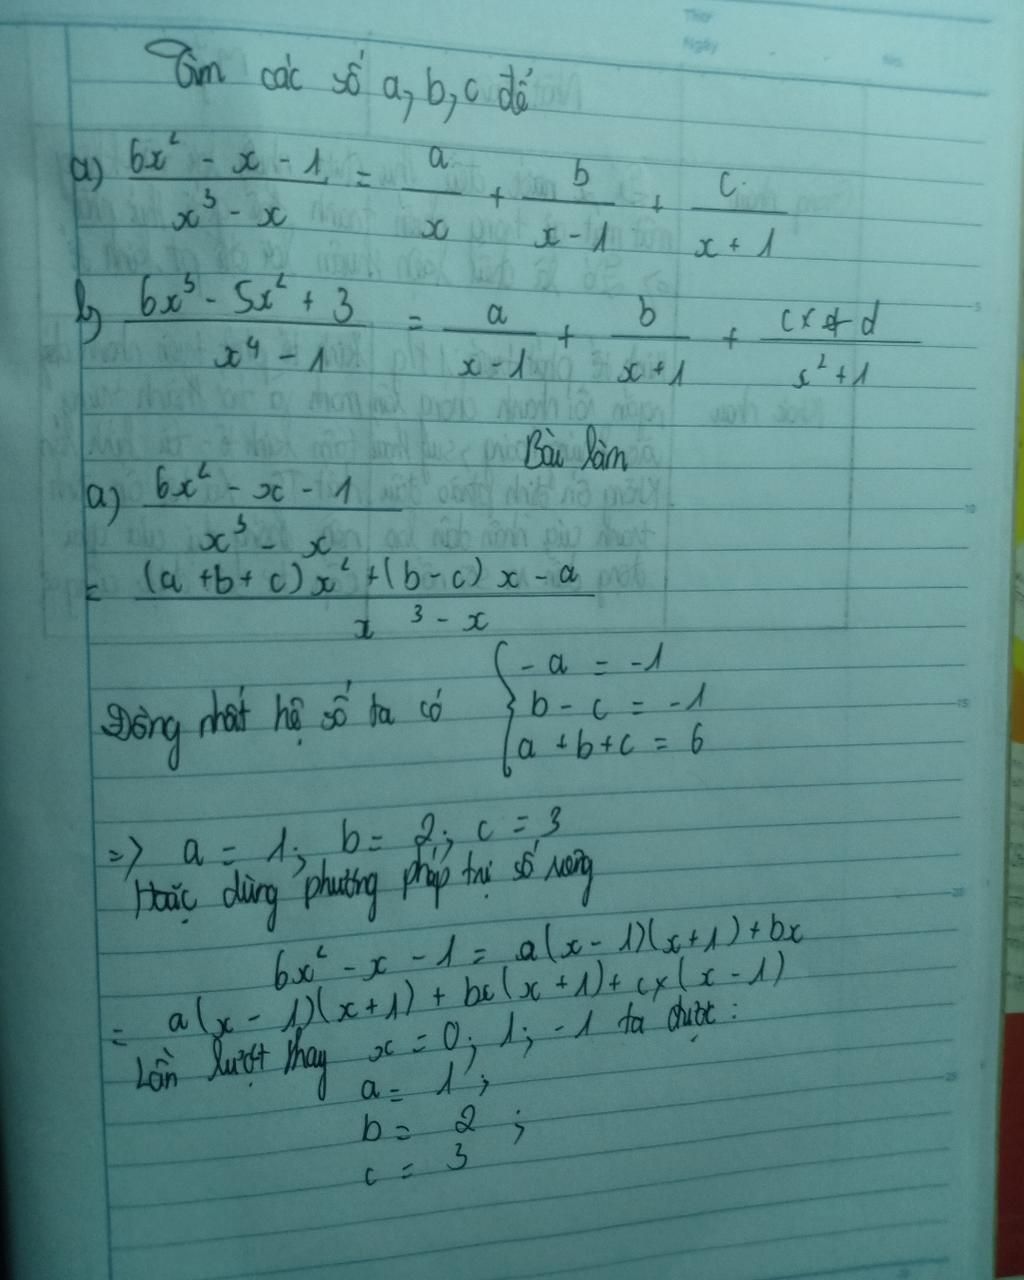 Thứ
Ngày
No.
Tìm các số a, b, c để
a) (6x² - x - 1)/(x³ - x) = a/x + b/(x - 1) + c/(x + 1)
b) (6x³ - 5x² + 3)/(x⁴ - 1) = a/(x - 1) + b/(x + 1) + (cx + d)/(x² + 1)
Bài làm
a) (6x² - x - 1)/(x³ - x)
= ((a + b + c)x² + (b - c)x - a)/(x³ - x)
Đồng nhất hệ số ta có { -a = -1
b - c = -1
a + b + c = 6
=> a = 1; b = 2; c = 3
Hoặc dùng phương pháp trị số riêng
6x² - x - 1 = a(x - 1)(x + 1) + bx
= a(x - 1)(x + 1) + bx(x + 1) + cx(x - 1)
Lần lượt thay x = 0; 1; -1 ta được:
a = 1;
b = 2;
c = 3